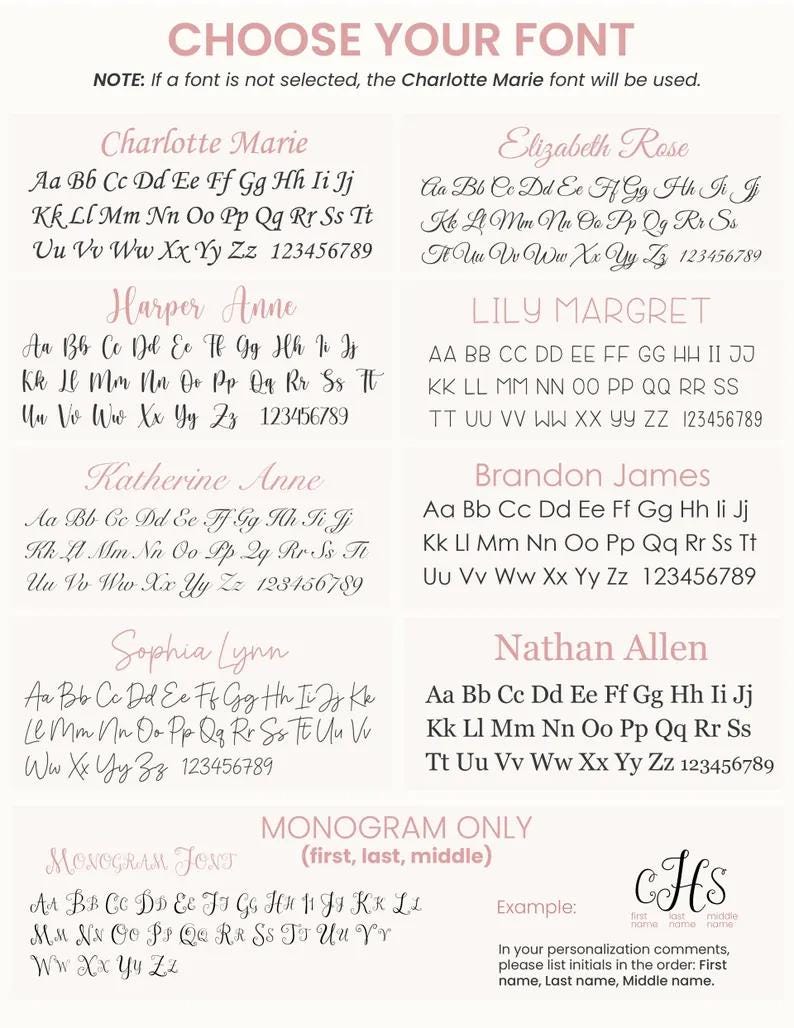 CHOOSE YOUR FONT
NOTE: If a font is not selected, the Charlotte Marie font will be used.
Charlotte Marie
Aa Bb Cc Dd Ee Ff Gg Hh Ii Jj
Kk Ll Mm Nn Oo Pp Qq Rr Ss Tt
Uu Vv Ww Xx Yy Zz 123456789
Elizabeth Rose
Aa Bb Cc Dd Ee Ff Gg Hh Ii Jj
Kk Ll Mm Nn Oo Pp Qq Rr Ss
Tt Uu Vv Ww Xx Yy Zz 123456789
Harper Anne
Aa Bb Cc Dd Ee Ff Gg Hh Ii Jj
Kk Ll Mm Nn Oo Pp Qq Rr Ss Tt
Uu Vv Ww Xx Yy Zz 123456789
LILY MARGRET
AA BB CC DD EE FF GG HH II JJ
KK LL MM NN OO PP QQ RR SS
TT UU VV WW XX YY ZZ 123456789
Katherine Anne
Aa Bb Cc Dd Ee Ff Gg Hh Ii Jj
Kk Ll Mm Nn Oo Pp Qq Rr Ss Tt
Uu Vv Ww Xx Yy Zz 123456789
Brandon James
Aa Bb Cc Dd Ee Ff Gg Hh Ii Jj
Kk Ll Mm Nn Oo Pp Qq Rr Ss Tt
Uu Vv Ww Xx Yy Zz 123456789
Sophia Lynn
Aa Bb Cc Dd Ee Ff Gg Hh Ii Jj Kk
Ll Mm Nn Oo Pp Qq Rr Ss Tt Uu Vv
Ww Xx Yy Zz 123456789
Nathan Allen
Aa Bb Cc Dd Ee Ff Gg Hh Ii Jj
Kk Ll Mm Nn Oo Pp Qq Rr Ss
Tt Uu Vv Ww Xx Yy Zz 123456789
MONOGRAM ONLY
(first, last, middle)
MONOGRAM FONT
AA BB CC DD EE FF GG HH II JJ KK LL
MM NN OO PP QQ RR SS TT UU VV
WW XX YY ZZ
Example:
CHS
first name last name middle name
In your personalization comments,
please list initials in the order: First
name, Last name, Middle name.